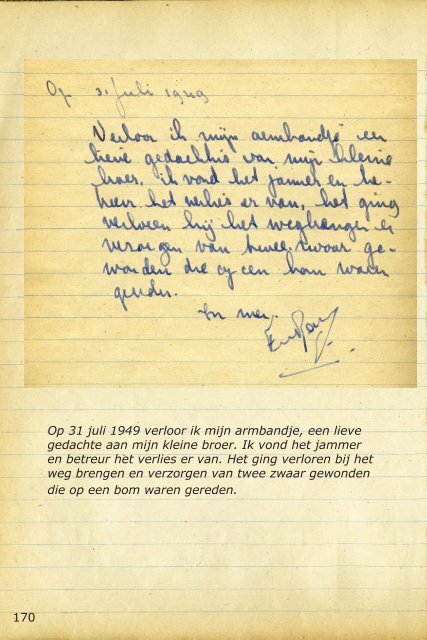 Op 31 Juli 1949
Verloor ik mijn armbandje een
lieve gedachtnis van mijn kleine
broer, ik vond het jamer en be-
treur het verlies er van, het ging
verloren bij het wegbrengen en
verzorgen van twee zwaar ge-
wonden die op een bom waren
gereden.
Op 31 juli 1949 verloor ik mijn armbandje, een lieve
gedachte aan mijn kleine broer. Ik vond het jammer
en betreur het verlies er van. Het ging verloren bij het
weg brengen en verzorgen van twee zwaar gewonden
die op een bom waren gereden.
170